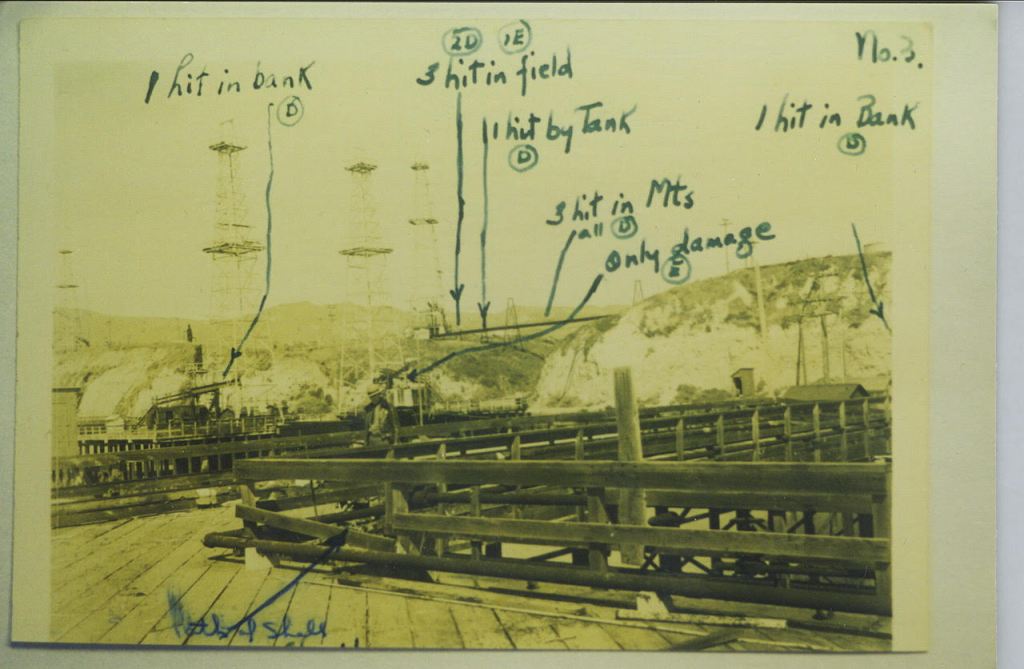 No. 3.
2D 1E
3 hit in field
1 hit in bank
D
1 hit by Tank
D
1 hit in Bank
D
3 hit in Mts
all D
Only damage
E
Path of Shell